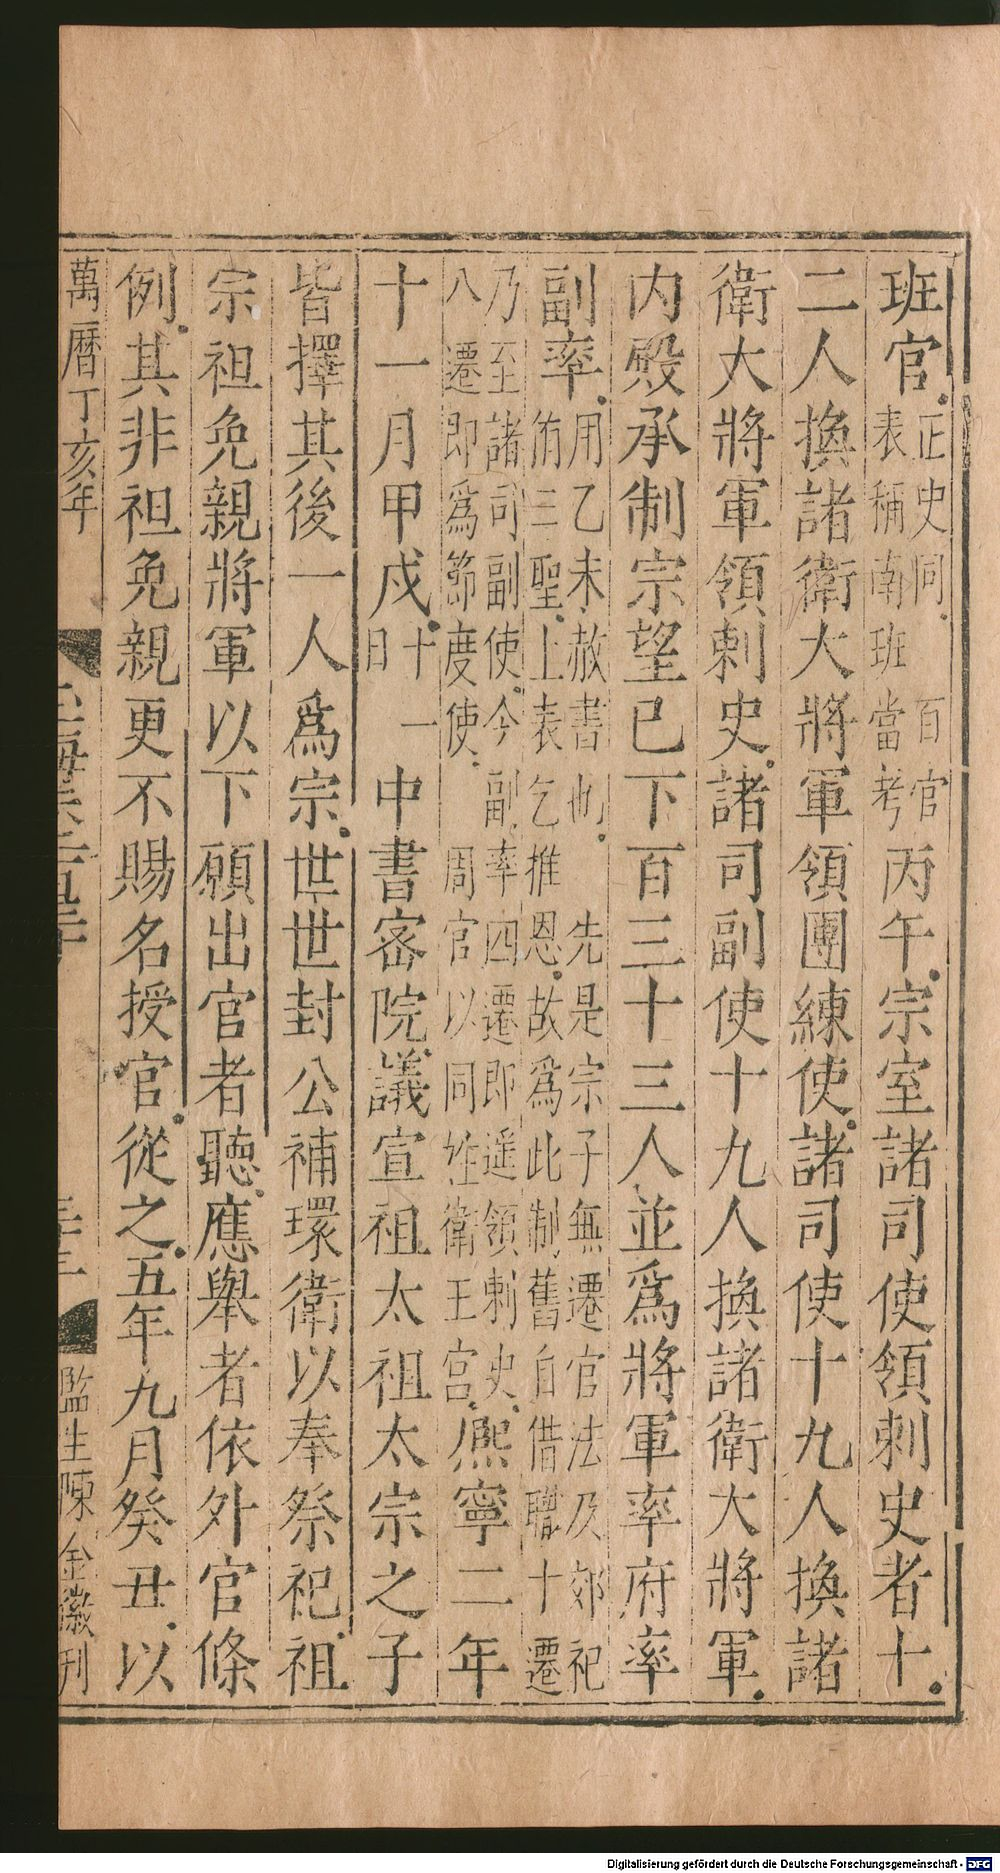 班官正史同百官表稱南班當考丙午宗室諸司使領刺史者十
二人換諸衛大將軍領團練使諸司使十九人換諸
衛大將軍領刺史諸司副使十九人換諸衛大將軍
内殿承制宗望已下百三十三人並爲將軍率府率
副率用乙未赦書也先是宗子無遷官法及郊祀侑三聖上表乞推恩故爲此制舊自借職十遷
乃至諸司副使今副率四遷即遥領刺史八遷即爲節度使周官以同姓衛王宫熈寧二年
十一月甲戌十一日中書宻院議宣祖太祖太宗之子
皆擇其後一人爲宗世世封公補環衛以奉祭祀祖
宗袒免親將軍以下願出官者聽應舉者依外官條
例其非袒免親更不賜名授官從之五年九月癸丑以
萬曆丁亥年
監生陳金徽刊
Digitalisierung gefördert durch die Deutsche Forschungsgemeinschaft - DFG